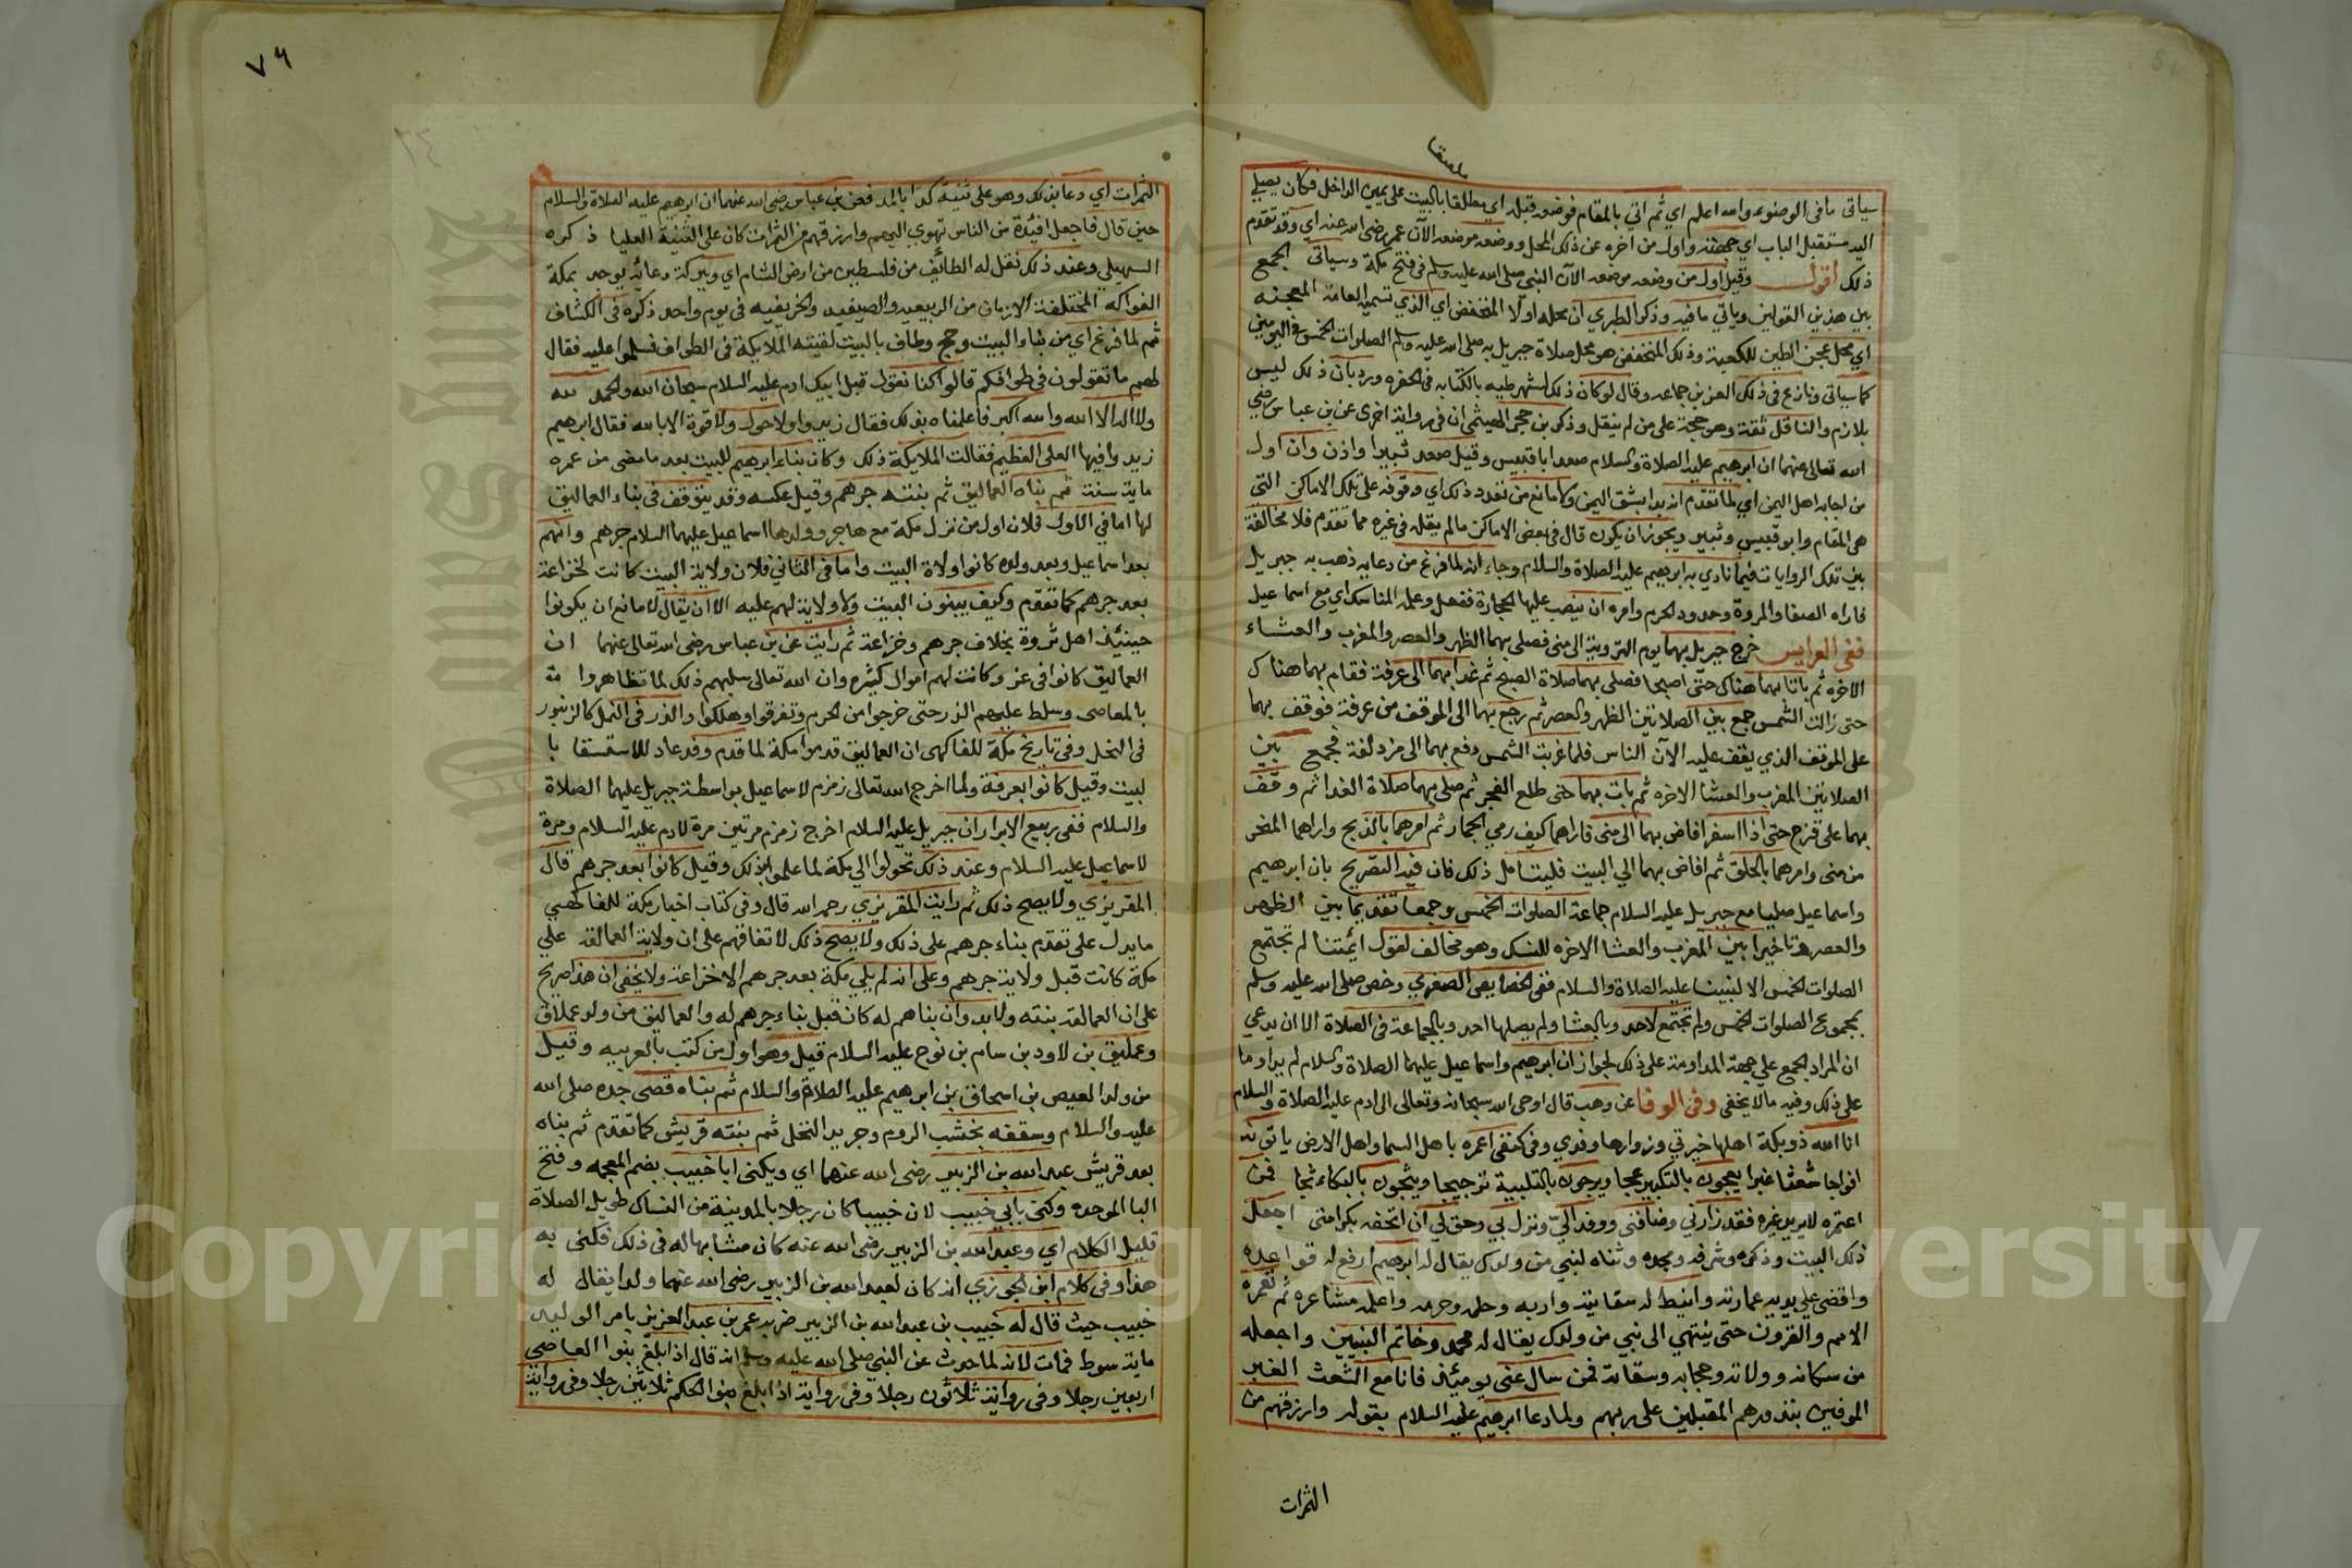 ملصقا
سياتى ما فى الوضوء والله اعلم اي ثم اتي بالمقام فوضعه قبله اي مطلقا بالبيت على يمين الداخل فكان يصلي
اليه مستقبل الباب اي جهته واول من اخره عن ذلك المحل ووضعه موضعه الآن عمر رضى الله عنه اي وقد تقدم
ذلك اقول وقيل اول من وضعه موضعه الآن النبي صلى الله عليه وسلم فى فتح مكة وسياتى الجمع
بين هذين القولين وياتي ما فيه وذكر الطبري ان محله اولا المنخفض اي الذي تسميه العامة المعجنه
اي محل عجن الطين للكعبة وذلك المنخفض هو محل صلاة جبريل به صلى الله عليه وسلم الصلوات الخمس فى اليومين
كما سياتى ونازع فى ذلك العز بن جماعه وقال لو كان ذلك لشهر عليه بالكتابه فى الحفره ورد بان ذلك ليس
بلازم والناقل ثقة وهو حجة على من لم ينقل وذكر بن حجر الهيثمى ان فى رواية اخرى عن بن عباس رضي
الله تعالى عنهما ان ابرهيم عليه الصلاة والسلام صعد ابا قبيس وقيل صعد ثبيرا واذن وان اول
من اجابه اهل اليمن اي لما تقدم انه بدا بشق اليمن ولا مانع من تعدد ذلك اي وقوفه على تلك الاماكن التي
هى المقام وابو قبيس وثبير ويجوز ان يكون قال فى بعض الاماكن ما لم يقله فى غيره مما تقدم فلا مخالفة
بين تلك الروايات فيما نادي به ابرهيم عليه الصلاة والسلام وجاء انه لما فرغ من دعايه ذهب به جبريل
فاراه الصفا والمروة وحدود الحرم وامره ان ينصب عليها الحجارة ففعل وعلمه المناسك اي مع اسماعيل
ففى العرايس خرج جبريل بهما يوم التروية الى منى فصلى بهما الظهر والعصر والمغرب والعشاء
الاخره ثم باتا بهما هناك حتى اصبحا فصلى بهما صلاة الصبح ثم غدا بهما الى عرفة فقام بهما هناك
حتى زالت الشمس جمع بين الصلاتين الظهر والعصر ثم رجع بهما الى الموقف من عرفة فوقف بهما
على الموقف الذي يقف عليه الآن الناس فلما غربت الشمس دفع بهما الى مزدلفة فجمع بين
الصلاتين المغرب والعشا الاخره ثم بات بهما حتى طلع الفجر ثم صلى بهما صلاة الغدا ثم وقف
بهما على قزح حتى اذا اسفر افاض بهما الى منى فاراهما كيف رمي الجمار ثم امرهما بالذبح واراهما المنحر
من منى وامرهما بالحلق ثم افاض بهما الي البيت فليتامل ذلك فان فيه التصريح بان ابرهيم
واسماعيل صليا مع جبريل عليه السلام جماعة الصلوات الخمس وجمعا تقديما بين الظهر
والعصر وتاخيرا بين المغرب والعشا الاخره للنسك وهو مخالف لقول ائمتنا لم تجتمع
الصلوات الخمس الا لنبينا عليه الصلاة والسلام ففى الخصايص الصغري وخص صلى الله عليه وسلم
بمجموع الصلوات الخمس ولم تجتمع لاحد وبالعشا ولم يصلها احد وبالجماعة فى الصلاة الا ان يدعي
ان المراد الجمع علي جهة المداومة على ذلك لجواز ان ابرهيم واسماعيل عليهما الصلاة والسلام لم يداوما
على ذلك وفيه ما لا يخفى وفى الوفا عن وهب قال اوحى الله سبحانه وتعالى الى ادم عليه الصلاة والسلام
انا الله ذو بكة اهلها خيرتي وزوارها وفدي وفى كنفى اعمره باهل السما واهل الارض ياتونه
افواجا شعثا غبرا يعجون بالتكبير عجا ويرجون بالتلبية ترجيجا ويثجون بالبكاء ثجا فمن
اعتمره لا يريد غيره فقد زارني وضافنى ووفد اليّ ونزل بي وحق لي ان اتحفه بكرامتى اجعل
ذلك البيت وذكره وشرفه ومجده وثناه لنبي من ولدك يقال له ابرهيم ارفع له قواعده
واقضى على يديه عمارته وانبط له سقايته واريه وحله وحرمه واعلمه مشاعره ثم تعمره
الامم والقرون حتى ينتهي الى نبي من ولدك يقال له محمد وخاتم النبيين واجعله
من سكانه وولاته وحجابه وسقاته فمن سال عنى يوميئذ فانا مع الشعث الغبر
الموفين بنذورهم المقبلين على ربهم ولما دعا ابرهيم عليه السلام بقوله وارزقهم من
الثمرات
٧٦
الثمرات اي دعا بذلك وهو على ثنية كدا بالمد فعن بن عباس رضى الله عنهما ان ابرهيم عليه الصلاة والسلام
حين قال فاجعل افئدة من الناس تهوي اليهم وارزقهم من الثمرات كان على الثنية العليا ذكره
السهيلي وعند ذلك نقل له الطائف من فلسطين من ارض الشام اي وببركة دعائه يوجد بمكة
الفواكه المختلفة الازمان من الربيعيه والصيفيه والخريفيه فى يوم واحد ذكره فى الكشاف
ثم لما فرغ اي من بناء البيت وحج وطاف بالبيت لقيته الملايكة فى الطواف فسلموا عليه فقال
لهم ما تقولون فى طوافكم قالوا كنا نقول قبل ابيك ادم عليه السلام سبحان الله والحمد لله
ولا اله الا الله والله اكبر فاعلمناه بذلك فقال زيدوا ولا حول ولا قوة الا بالله فقال ابرهيم
زيدوا فيها العلى العظيم فقالت الملايكة ذلك وكان بناء ابرهيم للبيت بعد ما مضى من عمره
ماية سنة ثم بناه العماليق ثم بنته جرهم وقيل عكسه وقد يتوقف فى بناء العماليق
لها اما فى الاول فلان اول من نزل مكة مع هاجر وولدها اسماعيل عليهما السلام جرهم وانهم
بعد اسماعيل وبعد ولده كانوا ولاة البيت واما فى الثاني فلان ولاية البيت كانت لخزاعة
بعد جرهم كما تقدم وكيف يبنون البيت ولا ولاية لهم عليه الا ان يقال لا مانع ان يكونوا
حينيئذ اهل ثروة بخلاف جرهم وخزاعة ثم رايت عن بن عباس رضى الله تعالى عنهما ان
العماليق كانوا فى عز وكانت لهم اموال كثيره وان الله تعالى سلبهم ذلك لما تظاهروا
بالمعاصى وسلط عليهم الذر حتى خرجوا من الحرم وتفرقوا وهلكوا والذر فى النمل كالزنبور
فى النحل وفى تاريخ مكة للفاكهى ان العماليق قدموا مكة لما قدم وفد عاد للاستسقا با
لبيت وقيل كانوا بعرفة ولما اخرج الله تعالى زمزم لاسماعيل بواسطة جبريل عليهما الصلاة
والسلام ففى ربيع الابرار ان جبريل عليه السلام اخرج زمزم مرتين مرة لادم عليه السلام ومرة
لاسماعيل عليه السلام وعند ذلك تحولوا الي مكة لما علموا بذلك وقيل كانوا بعد جرهم قال
المقريزي ولا يصح ذلك ثم رايت المقريزي رحمه الله قال وفى كتاب اخبار مكة للفاكهي
ما يدل على تقدم بناء جرهم على ذلك ولا يصح ذلك لاتفاقهم على ان ولاية العمالقة علي
مكة كانت قبل ولاية جرهم وعلى انه لم يلي مكة بعد جرهم الا خزاعة ولا يخفى ان هذا صريح
على ان العمالقة بنته ولا بد وان بناهم له كان قبل بناء جرهم له والعماليق من ولد عملاق
وعمليق بن لاود بن سام بن نوح عليه السلام قيل وهو اول من كتب بالعربيه وقيل
من ولد العيص بن اسحاق بن ابرهيم عليه الصلاة والسلام ثم بناه قصى جده صلى الله
عليه والسلام وسقفه بخشب الروم وجريد النخل ثم بنته قريش كما تقدم ثم بناه
بعد قريش عبد الله بن الزبير رضى الله عنهما اي ويكنى ابا خبيب بضم المعجمه وفتح
البا الموحده وكنى بابي خبيب لان خبيبا كان رجلا بالمدينة من النساك طويل الصلاة
قليل الكلام اي وعبد الله بن الزبير رضى الله عنه كان مشابها له فى ذلك فكنى به
هذا وفى كلام ابن الجوزي انه كان لعبد الله بن الزبير رضى الله عنهما ولدا يقال له
خبيب حيث قال له خبيب بن عبد الله بن الزبير ضربه عمر بن عبد العزيز بامر الوليد
ماية سوط فمات لانه لما حدث عن النبي صلى الله عليه وسلم انه قال اذا بلغ بنوا العاصى
اربعين رجلا وفى رواية ثلاثون رجلا وفى رواية اذا بلغ بنو الحكم ثلاثين رجلا وفى رواية
Copyright © King Saud University